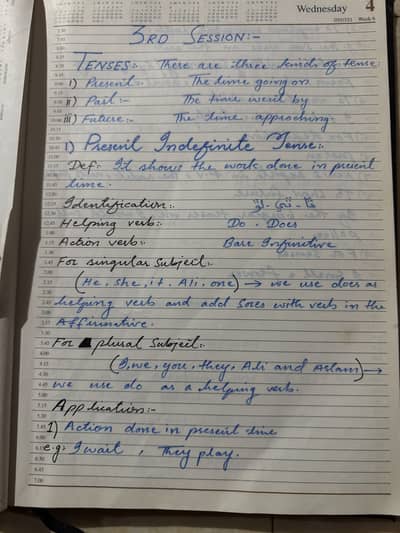 Wednesday 4
3RD SESSION:-
TENSES:- There are three kinds of tense
i) Present:- The time going on
ii) Past:- The time went by
iii) Future:- The time approching.
1) Present Indefinite Tense:-
Def: It shows the work done in present
time.
Identification:- تا - تی - تے
Helping verb:- Do - Does
Action verb:- Bare Infinitive
For singular Subject:-
(He, She, it, Ali, one) → we use does as
helping verb and add s or es with verb in the
Affirmative.
For plural Subject:-
(I, we, you, they, Ali and Aslam) →
we use do as a helping verb.
Application:-
1) Action done in present time
e.g: I wait, They play.